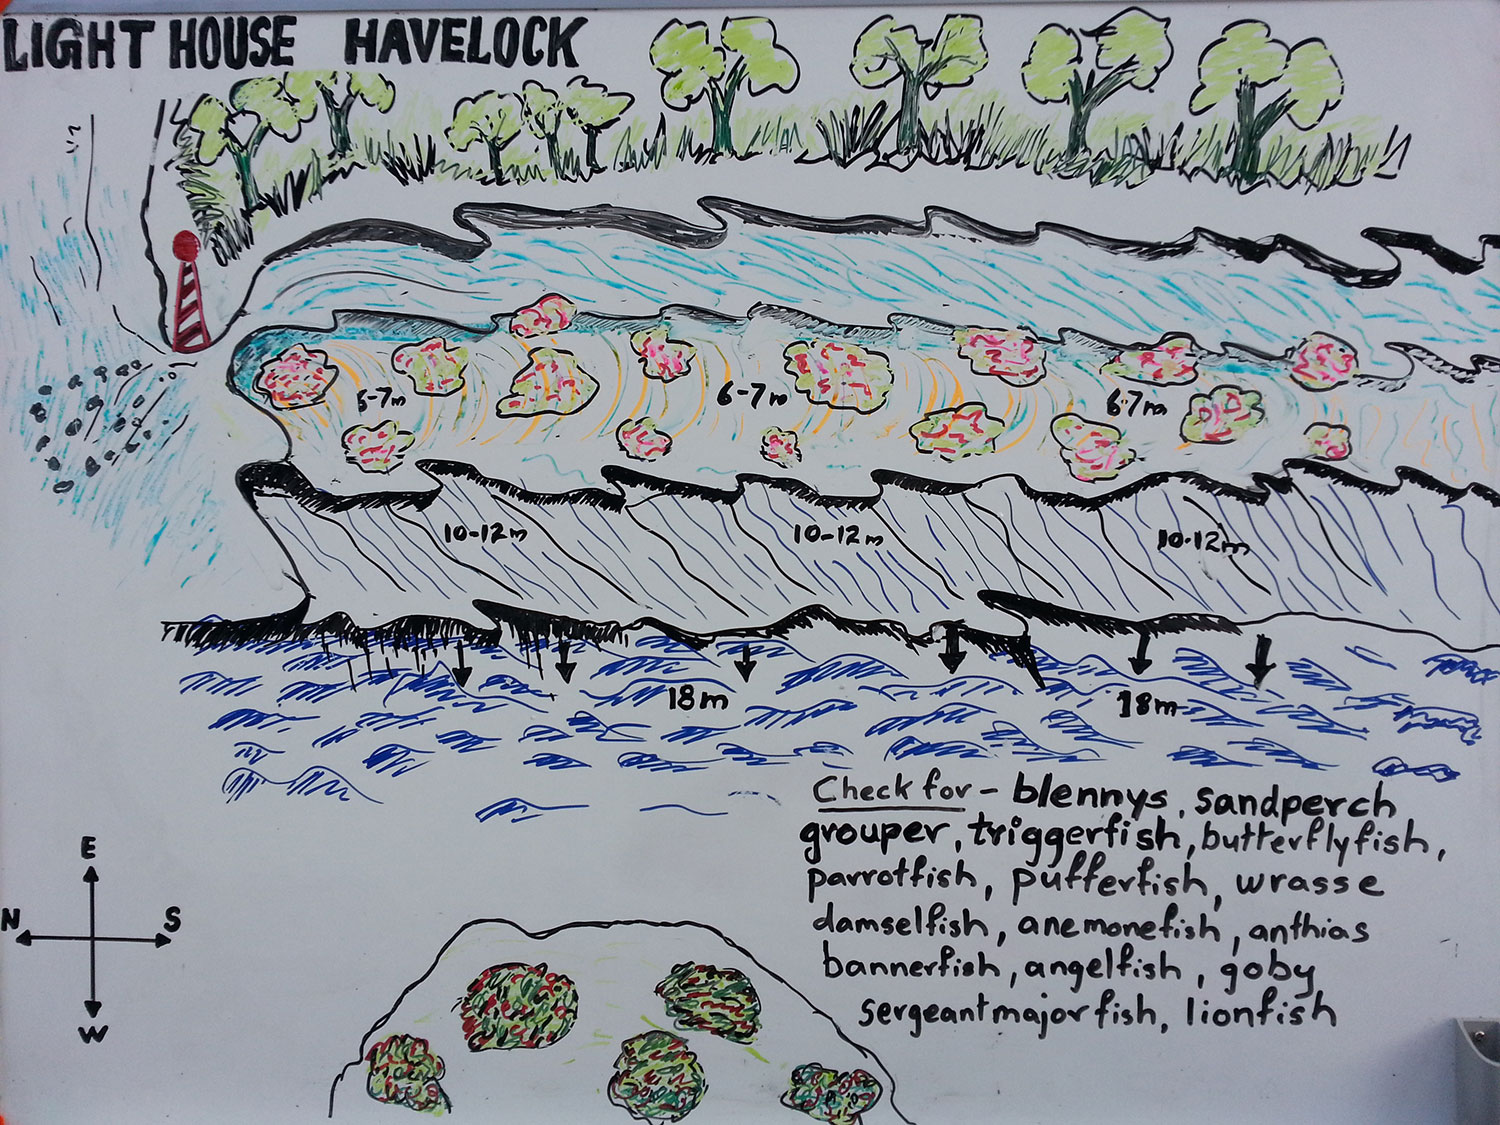 LIGHT HOUSE HAVELOCK
5-7m
6-7m
6-7m
10-12m
10-12m
10-12m
18m
18m
Check for - blennys, sandperch
grouper, triggerfish, butterflyfish,
parrotfish, pufferfish, wrasse
damselfish, anemonefish, anthias
bannerfish, angelfish, goby
sergeantmajorfish, lionfish
E
N S
W